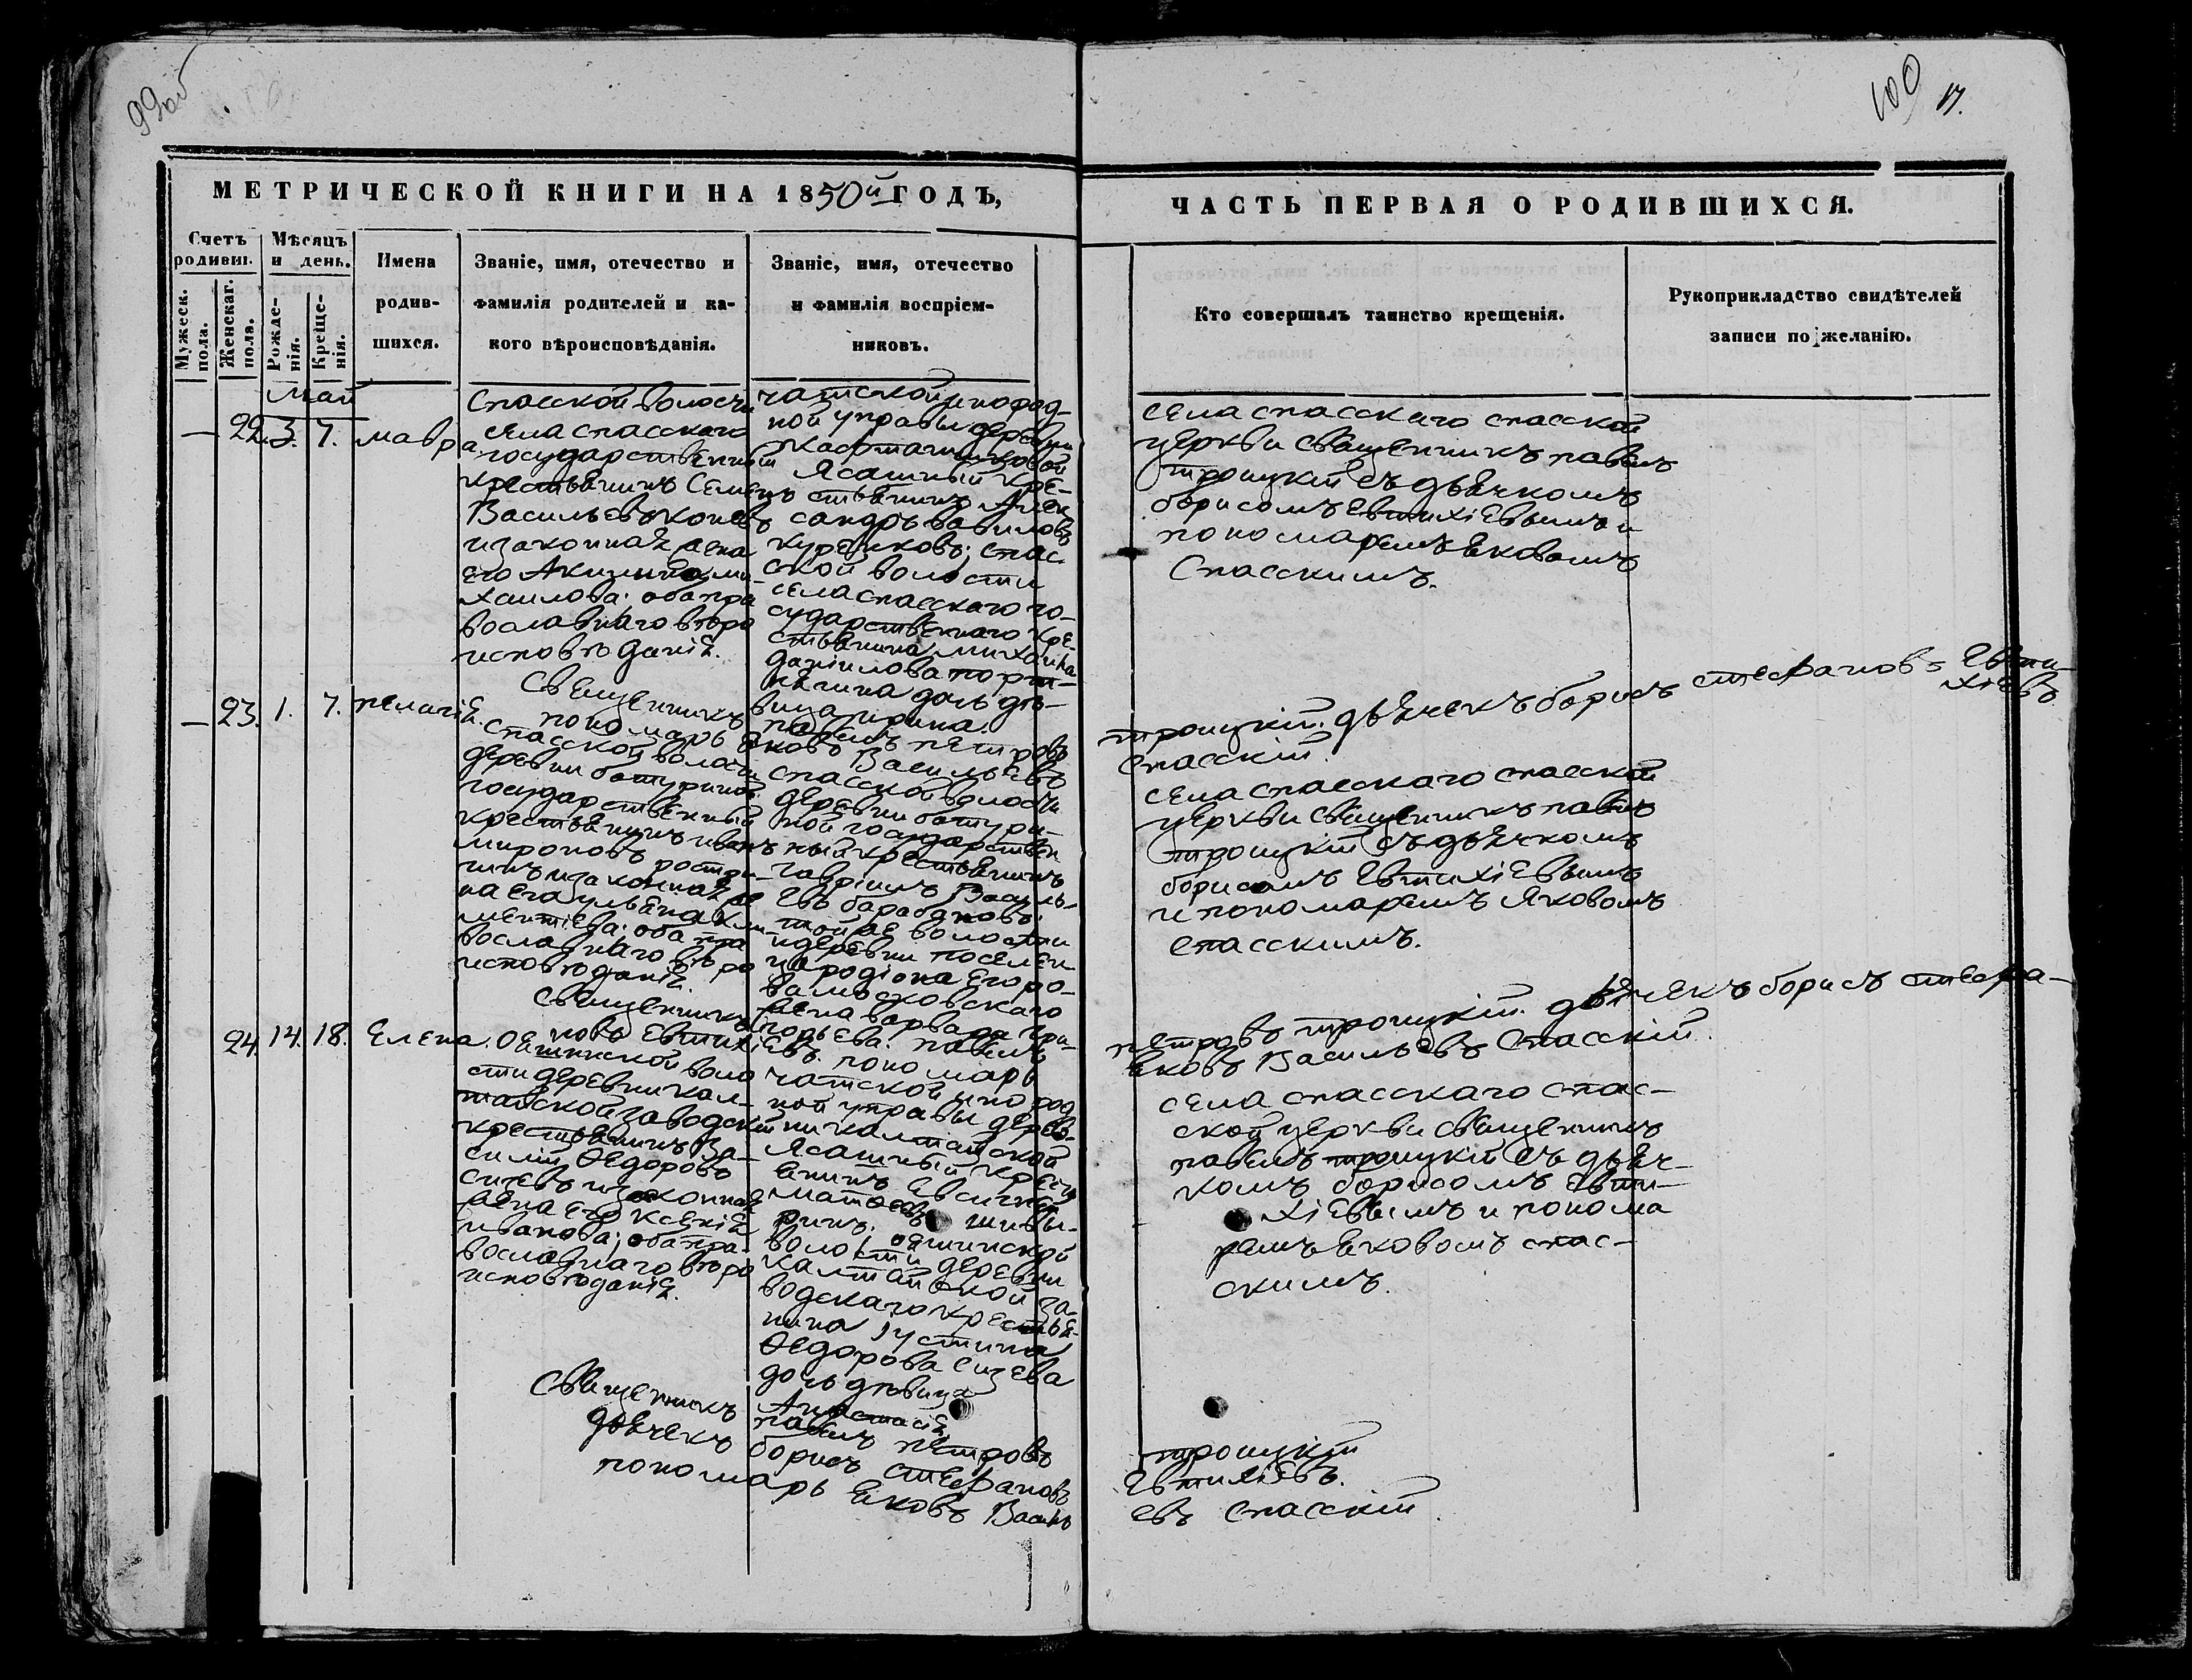 99об
100 17.
МЕТРИЧЕСКОЙ КНИГИ НА 1850й ГОДЪ,
ЧАСТЬ ПЕРВАЯ О РОДИВШИХСЯ.
Счетъ родивш.
Мужеск. пола.
Женскаг. пола.
Мѣсяцъ и день.
Рожде-нія.
Креще-нія.
Имена
родив-
шихся.
Званіе, имя, отечество и
фамилія родителей и ка-
кого вѣроисповѣданія.
Званіе, имя, отечество
и фамилія воспріем-
никовъ.
Кто совершалъ таинство крещенія.
Рукоприкладство свидѣтелей
записи по желанію.
Май
— 22. 3. 7. мавра
Спасской волости
села спасскаго
государственный
крестьянинъ Семенъ
Васильевъ
и законная жена
его Акилина ми-
хаилова: оба пра
вославнаго вѣро
исповѣданія.
чатской инород-
ной управы деревни
Ясашный кре-
стьянинъ Алек
сандръ Вавиловъ
спас
ской волости
села спасскаго го-
сударственнаго кре
стьянина Михаила
даніилова
дочь дѣ-
вица ирина.
села спасскаго спасской
церкви священникъ павелъ
троицкій съ дьячкомъ
борисомъ Евтихіевымъ и
пономаремъ яковомъ
Спасскимъ.
Священникъ павелъ петровъ троицкій. дьячекъ борисъ стефановъ Евти-
хіевъ
пономарь яковъ Васильевъ Спасскій.
— 23. 1. 7. пелагія.
Спасской волости
деревни батуриной
государственный
крестьянинъ иванъ
мироновъ
и законная же
на его ульяна кли-
ментіева: оба пра
вославнаго вѣро
исповѣданія.
спасской волости
деревни батури-
ной государствен
ный крестьянинъ
гавріилъ Василь-
евъ барабановъ;
той же волости
и деревни поселен-
ца родіона Егоро-
ва московскаго
жена варвара Гри-
горьева.
села спасскаго спасской
церкви священникъ павелъ
троицкій съ дьячкомъ
борисомъ Евтихіевымъ
и пономаремъ Яковомъ
спасскимъ.
Священникъ павелъ петровъ троицкій. дьячекъ борисъ стефа-
новъ Евтихіевъ. пономарь яковъ Васильевъ Спасскій.
24. 14. 18. Елена.
Ояшинской воло
сти деревни кал-
тайской заводскій
крестьянинъ Ва-
силій Ѳедоровъ
сизевъ и законная
жена его ксенія
иванова; оба пра-
вославнаго вѣро
исповѣданія.
чатской инород
ной управы дерев-
ни калтайской
Ясашный крест
янинъ Евсигній
ояшинской
волости деревни
калтайской за-
водскаго крестья-
нина Іустина
Ѳедорова сизева
дочь дѣвица
Анастасія
села спасскаго спас-
ской церкви священникъ
павелъ троицкій съ дьяч-
комъ борисомъ Евти-
хіевымъ и понома
ремъ яковомъ спас-
скимъ.
Священникъ павелъ петровъ троицкій
дьячекъ борисъ стефановъ Евтихіевъ.
пономарь яковъ Василь евъ спасскій.